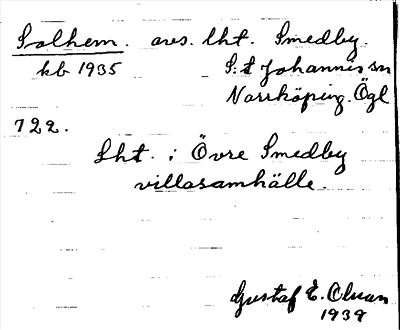 Solhem. avs. lht. Smedby.
kb 1935 S:t Johannis sn
Norrköping. Ögl
722.
Lht. i Övre Smedby
villasamhälle.
Gustaf E. Olsson
1939